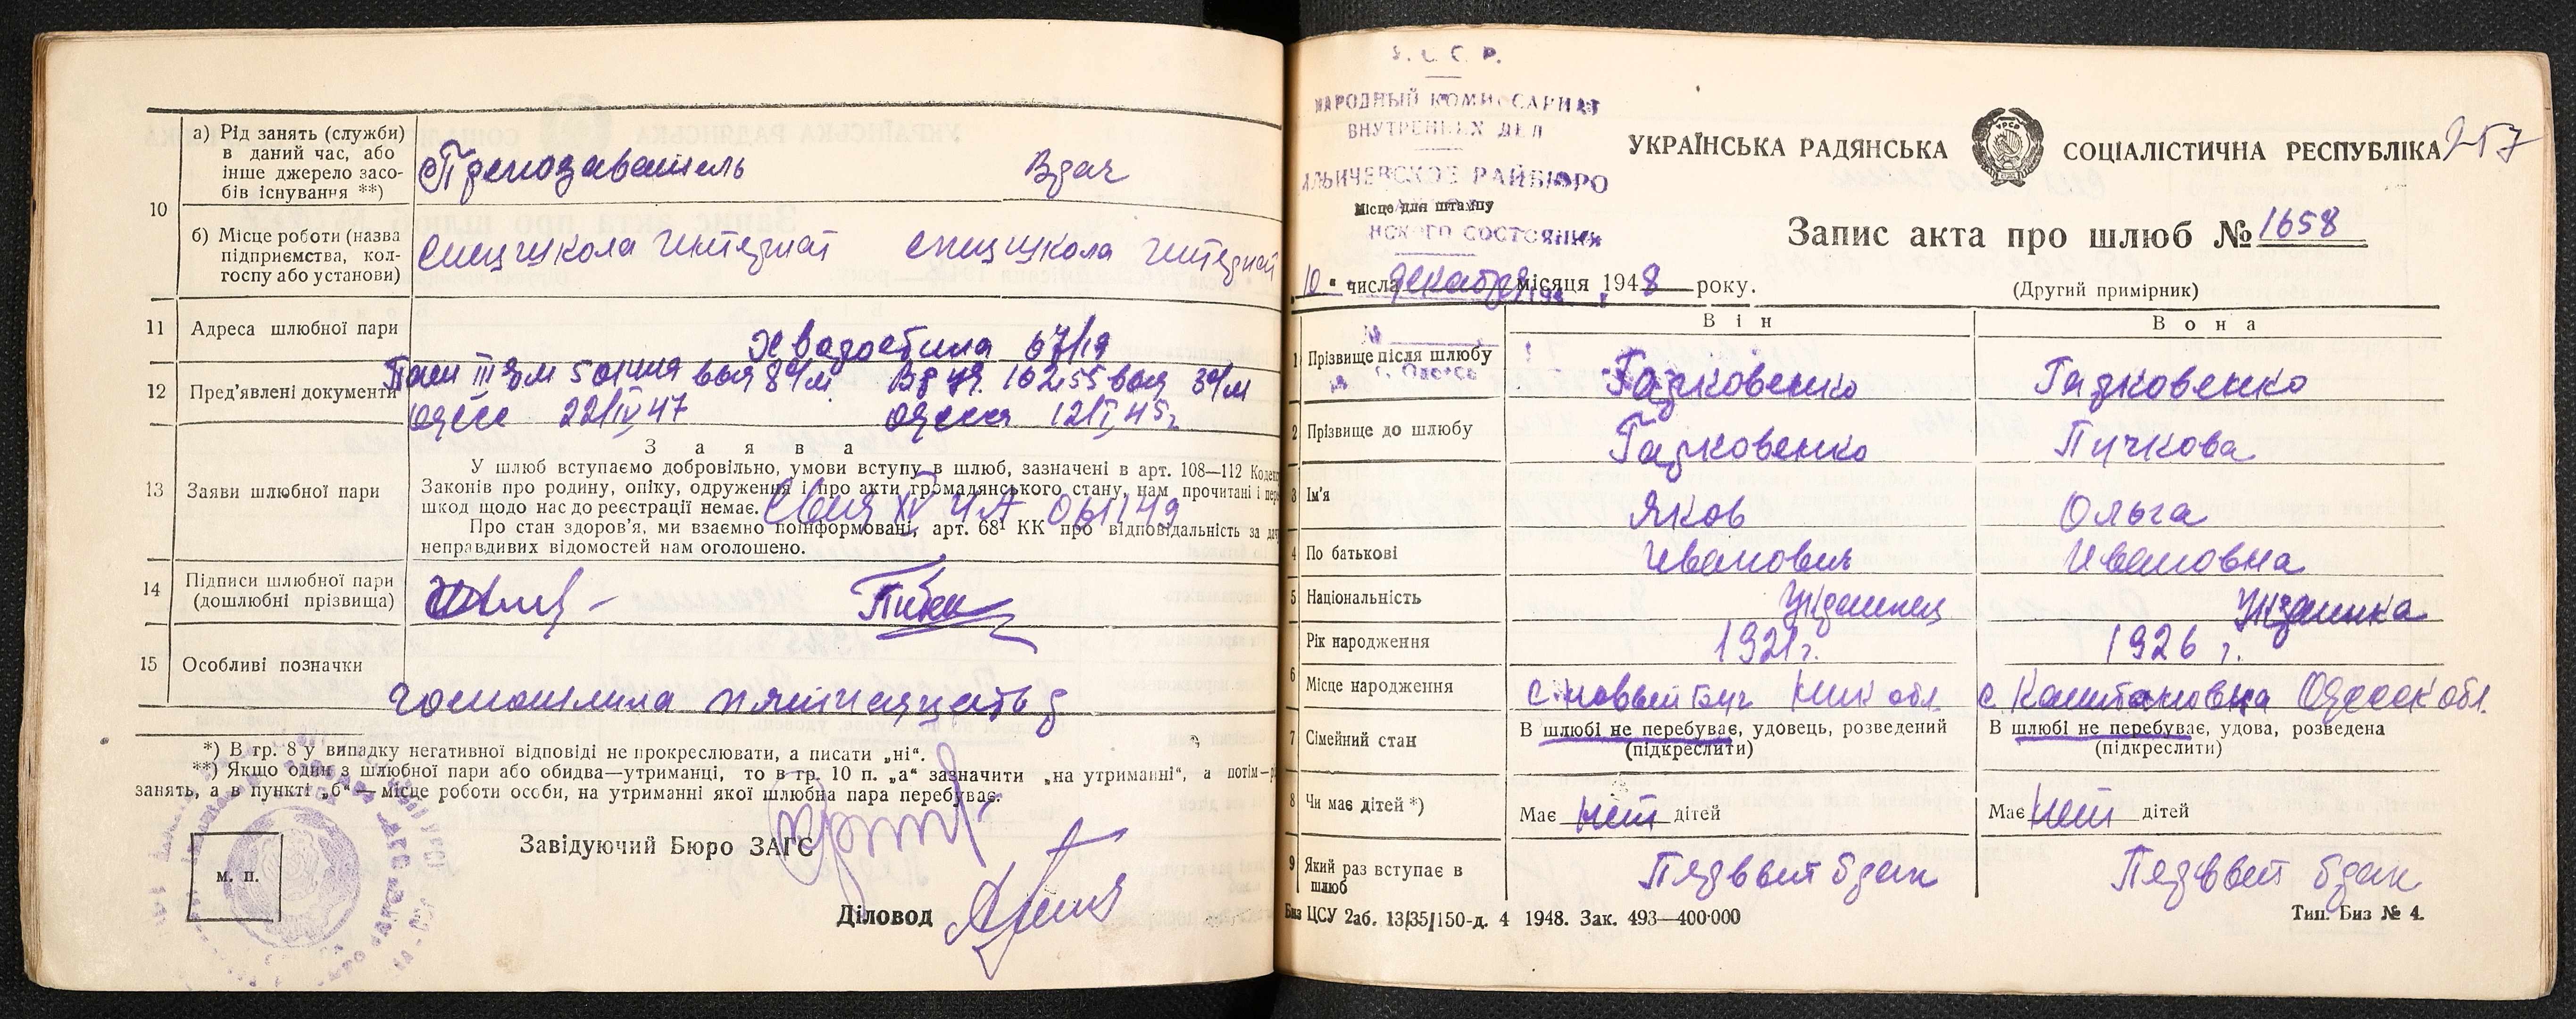 10
а) Рід занять (служби)
в даний час, або
інше джерело засо-
бів існування **)
Преподаватель Врач
б) Місце роботи (назва
підприємства, кол-
госпу або установи)
спец школа интернат спец школа интернат
11 Адреса шлюбної пари
Хворостина 67/19
12 Пред'явлені документи
Одессе 22/IV 47 Одесса 12/I 45г
13 Заяви шлюбної пари
З а я в а
У шлюб вступаємо добровільно, умови вступу в шлюб, зазначені в арт. 108—112 Кодек
Законів про родину, опіку, одруження і про акти громадянського стану, нам прочитані і пере
шкод щодо нас до реєстрації немає.
061149
Про стан здоров'я, ми взаємно поінформовані, арт. 68¹ КК про відповідальність за
неправдивих відомостей нам оголошено.
14 Підписи шлюбної пари
(дошлюбні прізвища)
15 Особливі позначки
госпошлина пятнадцать р
*) В гр. 8 у випадку негативної відповіді не прокреслювати, а писати „ні“.
**) Якщо один з шлюбної пари або обидва—утриманці, то в гр. 10 п. „а“ зазначити „на утриманні“, а потім—
занять, а в пункті „б“—місце роботи особи, на утриманні якої шлюбна пара перебуває.
м. п.
Завідуючий Бюро ЗАГС
Діловод
У. С. С. Р.
НАРОДНЫЙ КОМИССАРИАТ
ВНУТРЕННИХ ДЕЛ
ИЛЬИЧЕВСКОЕ РАЙБЮРО
Місце для штампу
СОСТОЯНИЯ
УКРАЇНСЬКА РАДЯНСЬКА СОЦІАЛІСТИЧНА РЕСПУБЛІКА
257
УРСР
Запис акта про шлюб № 1658
10 " числа декабря місяця 1948 року.
(Другий примірник)
В і н В о н а
1 Прізвище після шлюбу Гарковенко Гарковенко
г. Одесса
2 Прізвище до шлюбу Гарковенко Пичкова
3 Ім'я Яков Ольга
4 По батькові Иванович Ивановна
5 Національність Украинец Украинка
6 Рік народження 1921г. 1926 г.
Місце народження с Новый Буг Ник обл. с Каштановка Одесск обл.
7 Сімейний стан
В шлюбі не перебуває, удовець, розведений
(підкреслити)
В шлюбі не перебуває, удова, розведена
(підкреслити)
8 Чи має дітей *) Має нет дітей Має нет дітей
9 Який раз вступає в
шлюб
Первый брак Первый брак
Биз ЦСУ 2аб. 13/35/150-д. 4 1948. Зак. 493—400·000
Тип. Биз № 4.